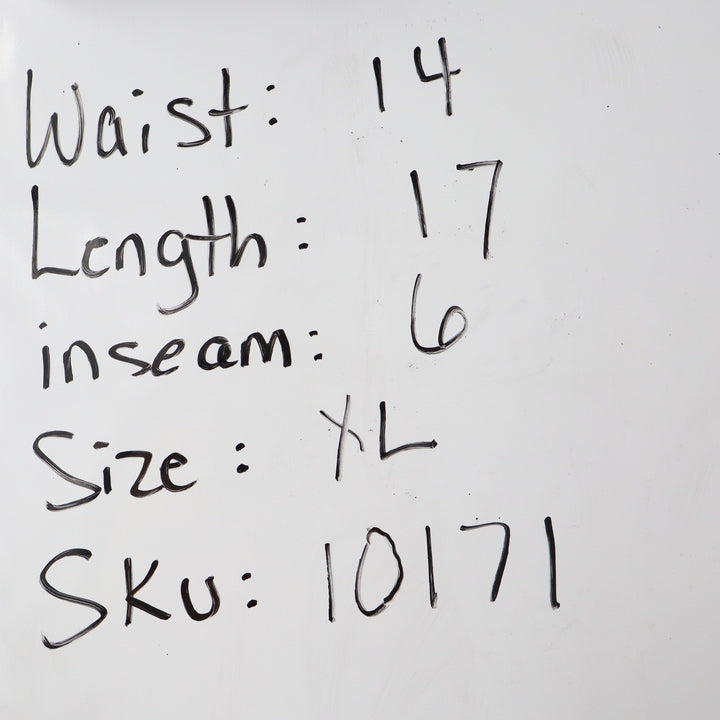 Waist: 14
Length: 17
inseam: 6
Size: XL
SKU: 10171